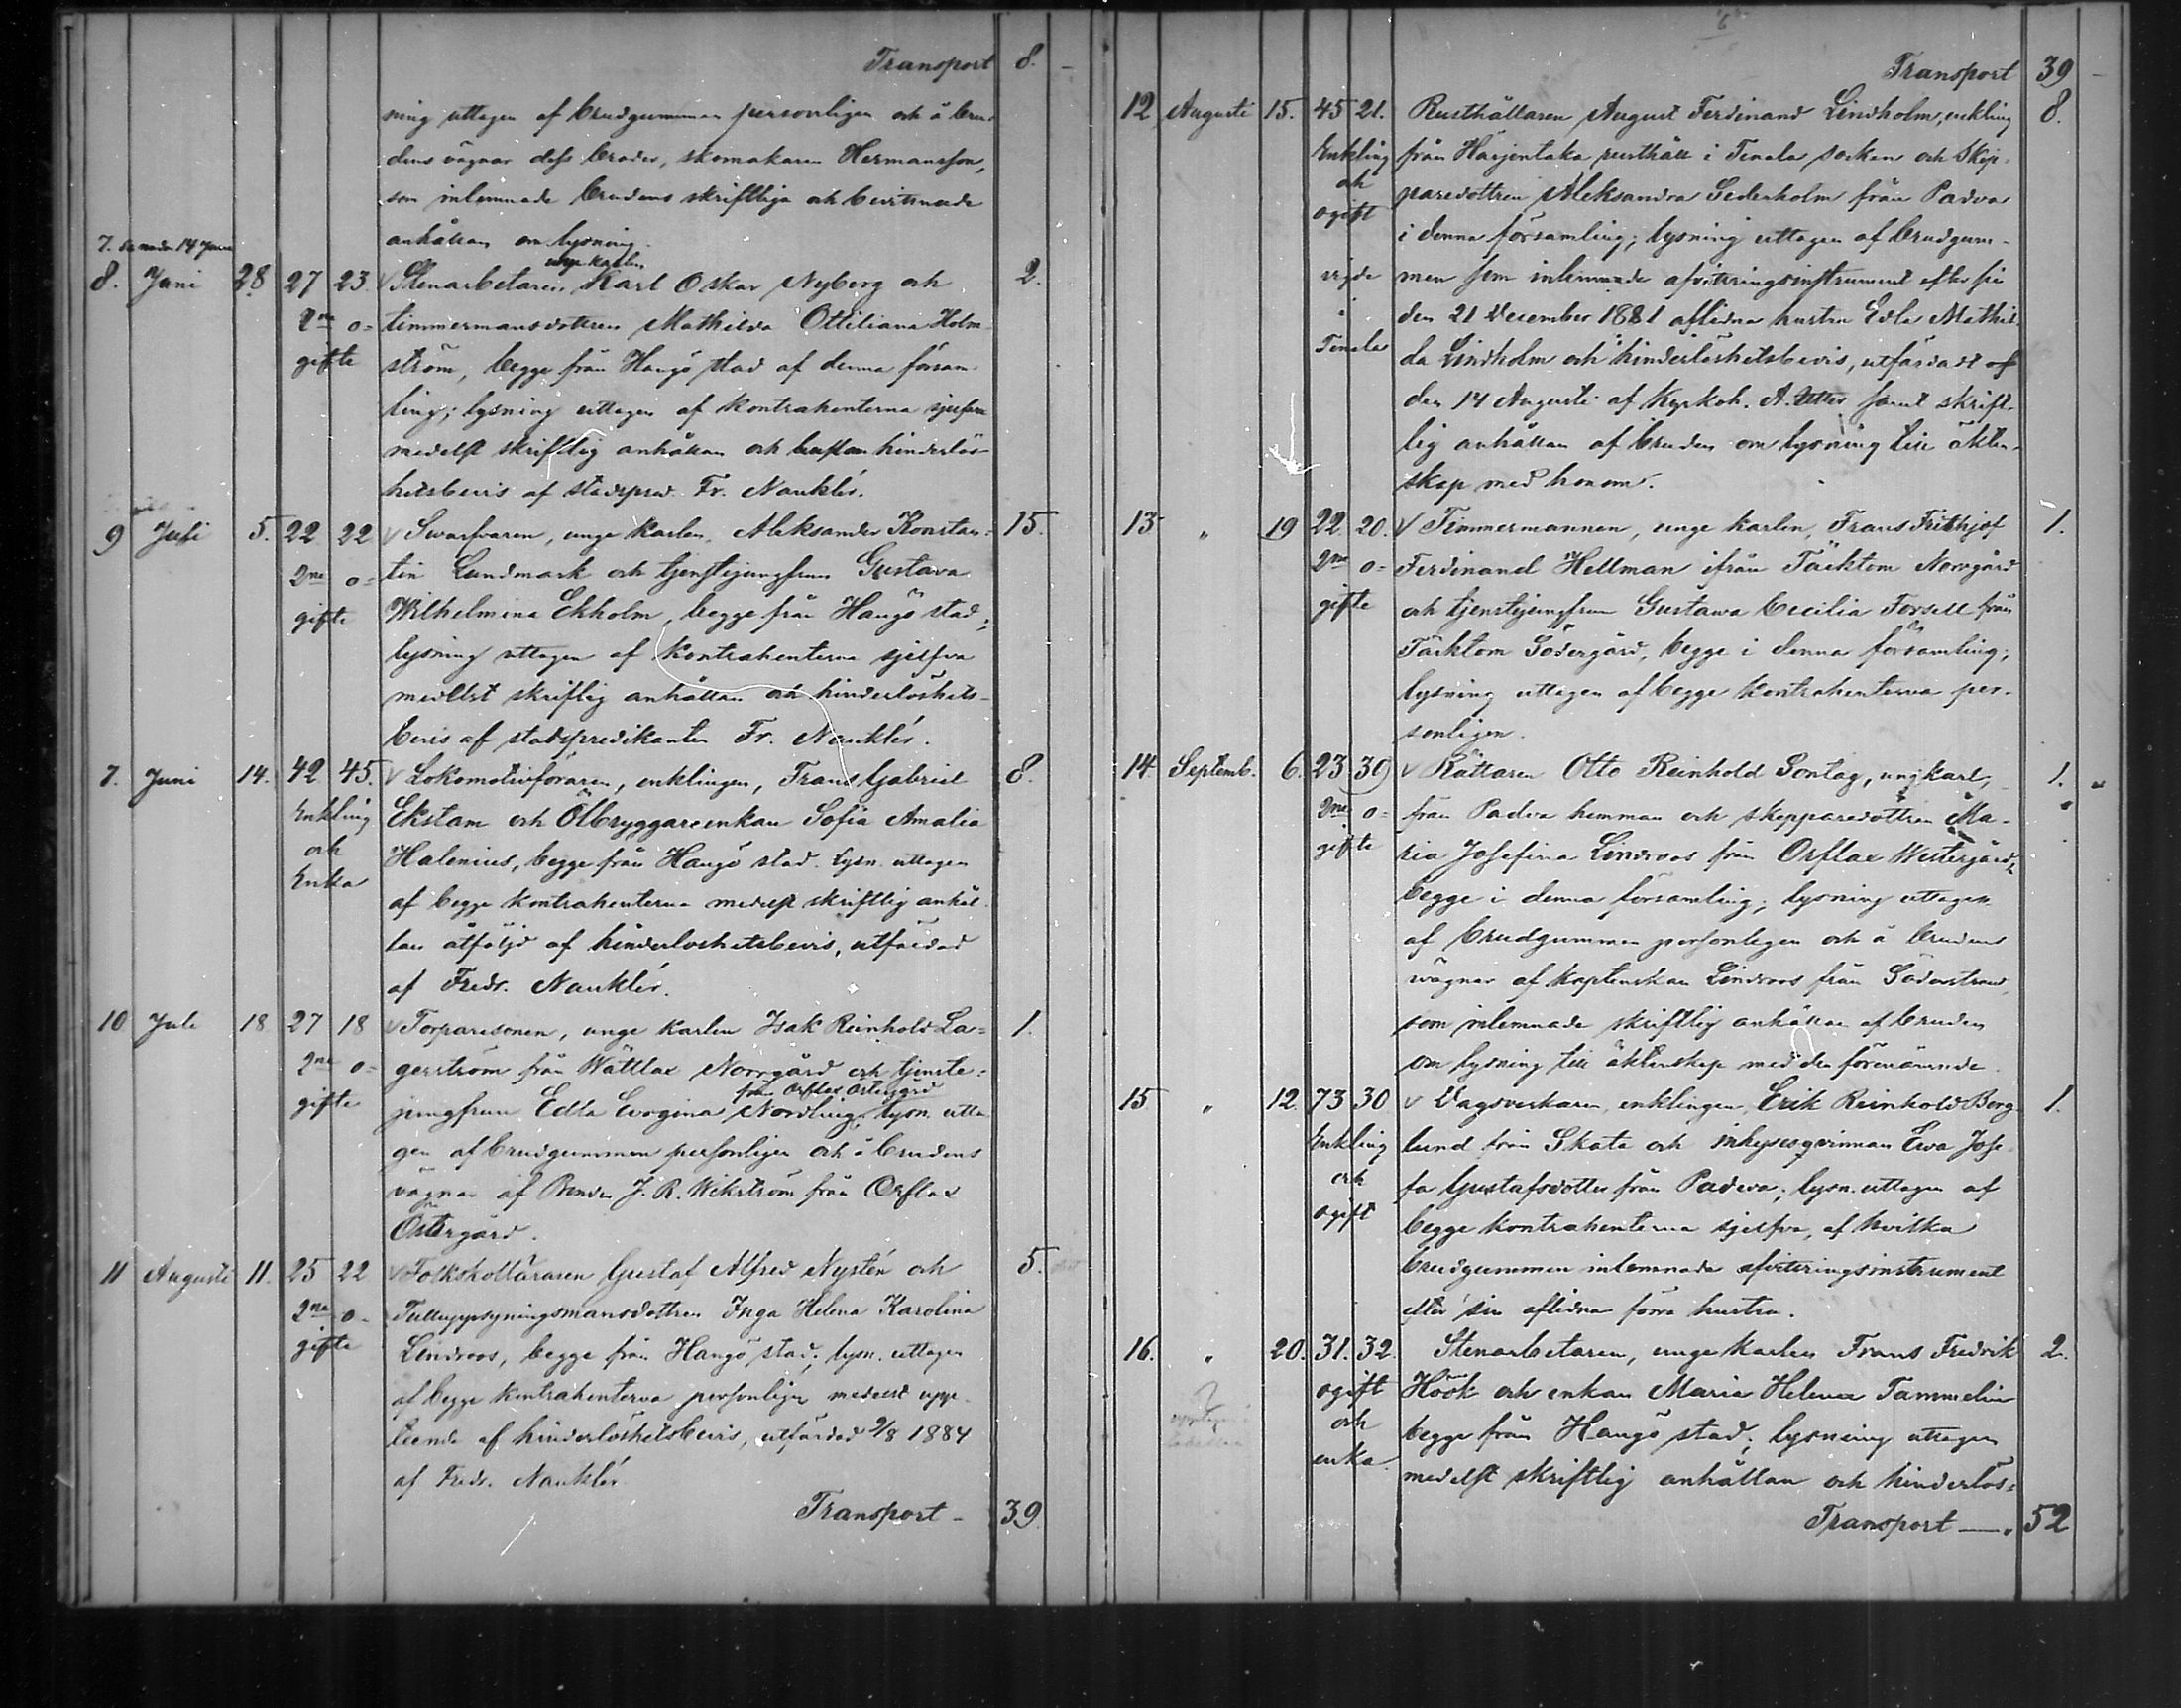 Transport 8. -
ning uttagen af brudgummen personligen och å bru-
dens vägnar dess broder, skomakaren Hermansson,
som inlemnade brudens skriftliga och bevitnade
anhållan om lysning.
7. se nedan 14 Juni
unge karlen
8. Juni 28 27 23. √ Stenarbetaren Karl Oskar Nyberg och 2.
2ne o= timmermansdottren Mathilda Ottiliana Holm-
gifte ström, begge från Hangö stad af denna försam-
ling; lysning uttagen af kontrahenterna sjelfva
medelst skriftlig anhållan och hinderlös-
hetsbevis af stadspred. Fr. Nauklér.
9 Juli 5. 22 22 √ Swarfvaren, unge karlen, Aleksander Konstan= 15.
2ne o= tin Lundmark och tjenstejungfrun Gustava
gifte Wilhelmina Ekholm, begge från Hangö stad;
lysning uttagen af kontrahenterna sjelfva
medelst skriftlig anhållan och hinderlöshets-
bevis af stadspredikanten Fr. Nauklér.
7. Juni 14. 42 45. √ Lokomotivföraren, enklingen, Frans Gabriel 8.
Enkling Ekstam och Ölbryggareenkan Sofia Amalia
och Halenius, begge från Hangö stad. Lysn. uttagen
Enka af begge kontrahenterna medelst skriftlig anhål-
lan åtföljd af hinderloshetsbevis, utfärdad
af Fredr. Nauklér.
10 Juli 18 27 18 √ Torparesonen, unge karlen Isak Reinhold La= 1.
2ne o= gerström från Wättlax Norrgård och tjenste=
från Orflax Östergård
gifte jungfrun Edla Evogina Nordling; lysn. utta
gen af brudgummen personligen och å brudens
vägnar af Bonden J. R. Wikström från Orflax
Östergård.
11 Augusti 11. 25 22 √ Folkskolläraren Gustaf Alfred Nystén och 5.
2ne o- Tulluppsyningsmansdottren Inga Helena Karolina
gifte Lindroos, begge från Hangö stad; lysn. uttagen
af begge kontrahenterna personligen medelst uppe-
teende af hinderlöshetsbevis, utfärdad 9/8 1884
af Fredr. Nauklér.
Transport - 39.
Transport 39 -
12 Augusti 15. 45 21. Rusthållaren August Ferdinand Lindholm, enkling 8.
Enkling från Harjentaka rusthåll i Tenala socken och Skep-
och paredottren Aleksandra Sederholm från Padva
ogift i denna församling; lysning uttagen af brudgum-
vigde men som inlemnade afvittringsinstrument efter sin
i den 21 December 1881 aflidna hustru Edla Mathil-
Tenala da Lindholm och hinderlöshetsbevis, utfärdadt af
den 14 Augusti af Kyrkoh. A. samt skrift-
lig anhållan af bruden om lysning till äkten-
skap med honom.
13 " 19 22 20. √ Timmermannen, unge karlen, Frans Frithjof 1.
2ne o= Ferdinand Hellman ifrån Täcktom Norrgård
gifte och tjenstejungfrun Gustawa Cecilia Forsell från
Täcktom Södergård, begge i denna församling;
lysning uttagen af begge kontrahenterna per-
sonligen.
14 Septemb. 6. 23 30 √ Rättaren Otto Reinhold Sontag, ung karl, 1. "
2ne o= från Padva hemman och skepparedottren Ma-
gifte ria Josefina Lindroos från Orflax Westergård,
begge i denna församling; lysning uttagen
af brudgummen personligen och å brudens
vägnar af kaptenskan Lindroos från Söderstrand,
som inlemnade skriftlig anhållan af bruden
om lysning till äktenskap med den förenämnde
15 " 12. 73 30 √ Dagsverkaren, enklingen, Erik Reinhold Berg 1.
Enkling lund från Skata och inhyseqvinnan Ewa Jose-
och fa Gustafsdotter från Padva; lysn. uttagen af
ogift begge kontrahenterna sjelfva, af hvilka
brudgummen inlemnade afvittringsinstrument
efter sin aflidna förra hustru.
16. " 20. 31. 32. Stenarbetaren, unge karlen Frans Fredrik 2.
ogift Höök och enkan Maria Helena Tammelin
och begge från Hangö stad; lysning uttagen
enka medelst skriftlig anhållan och hinderlös=
Transport — 52